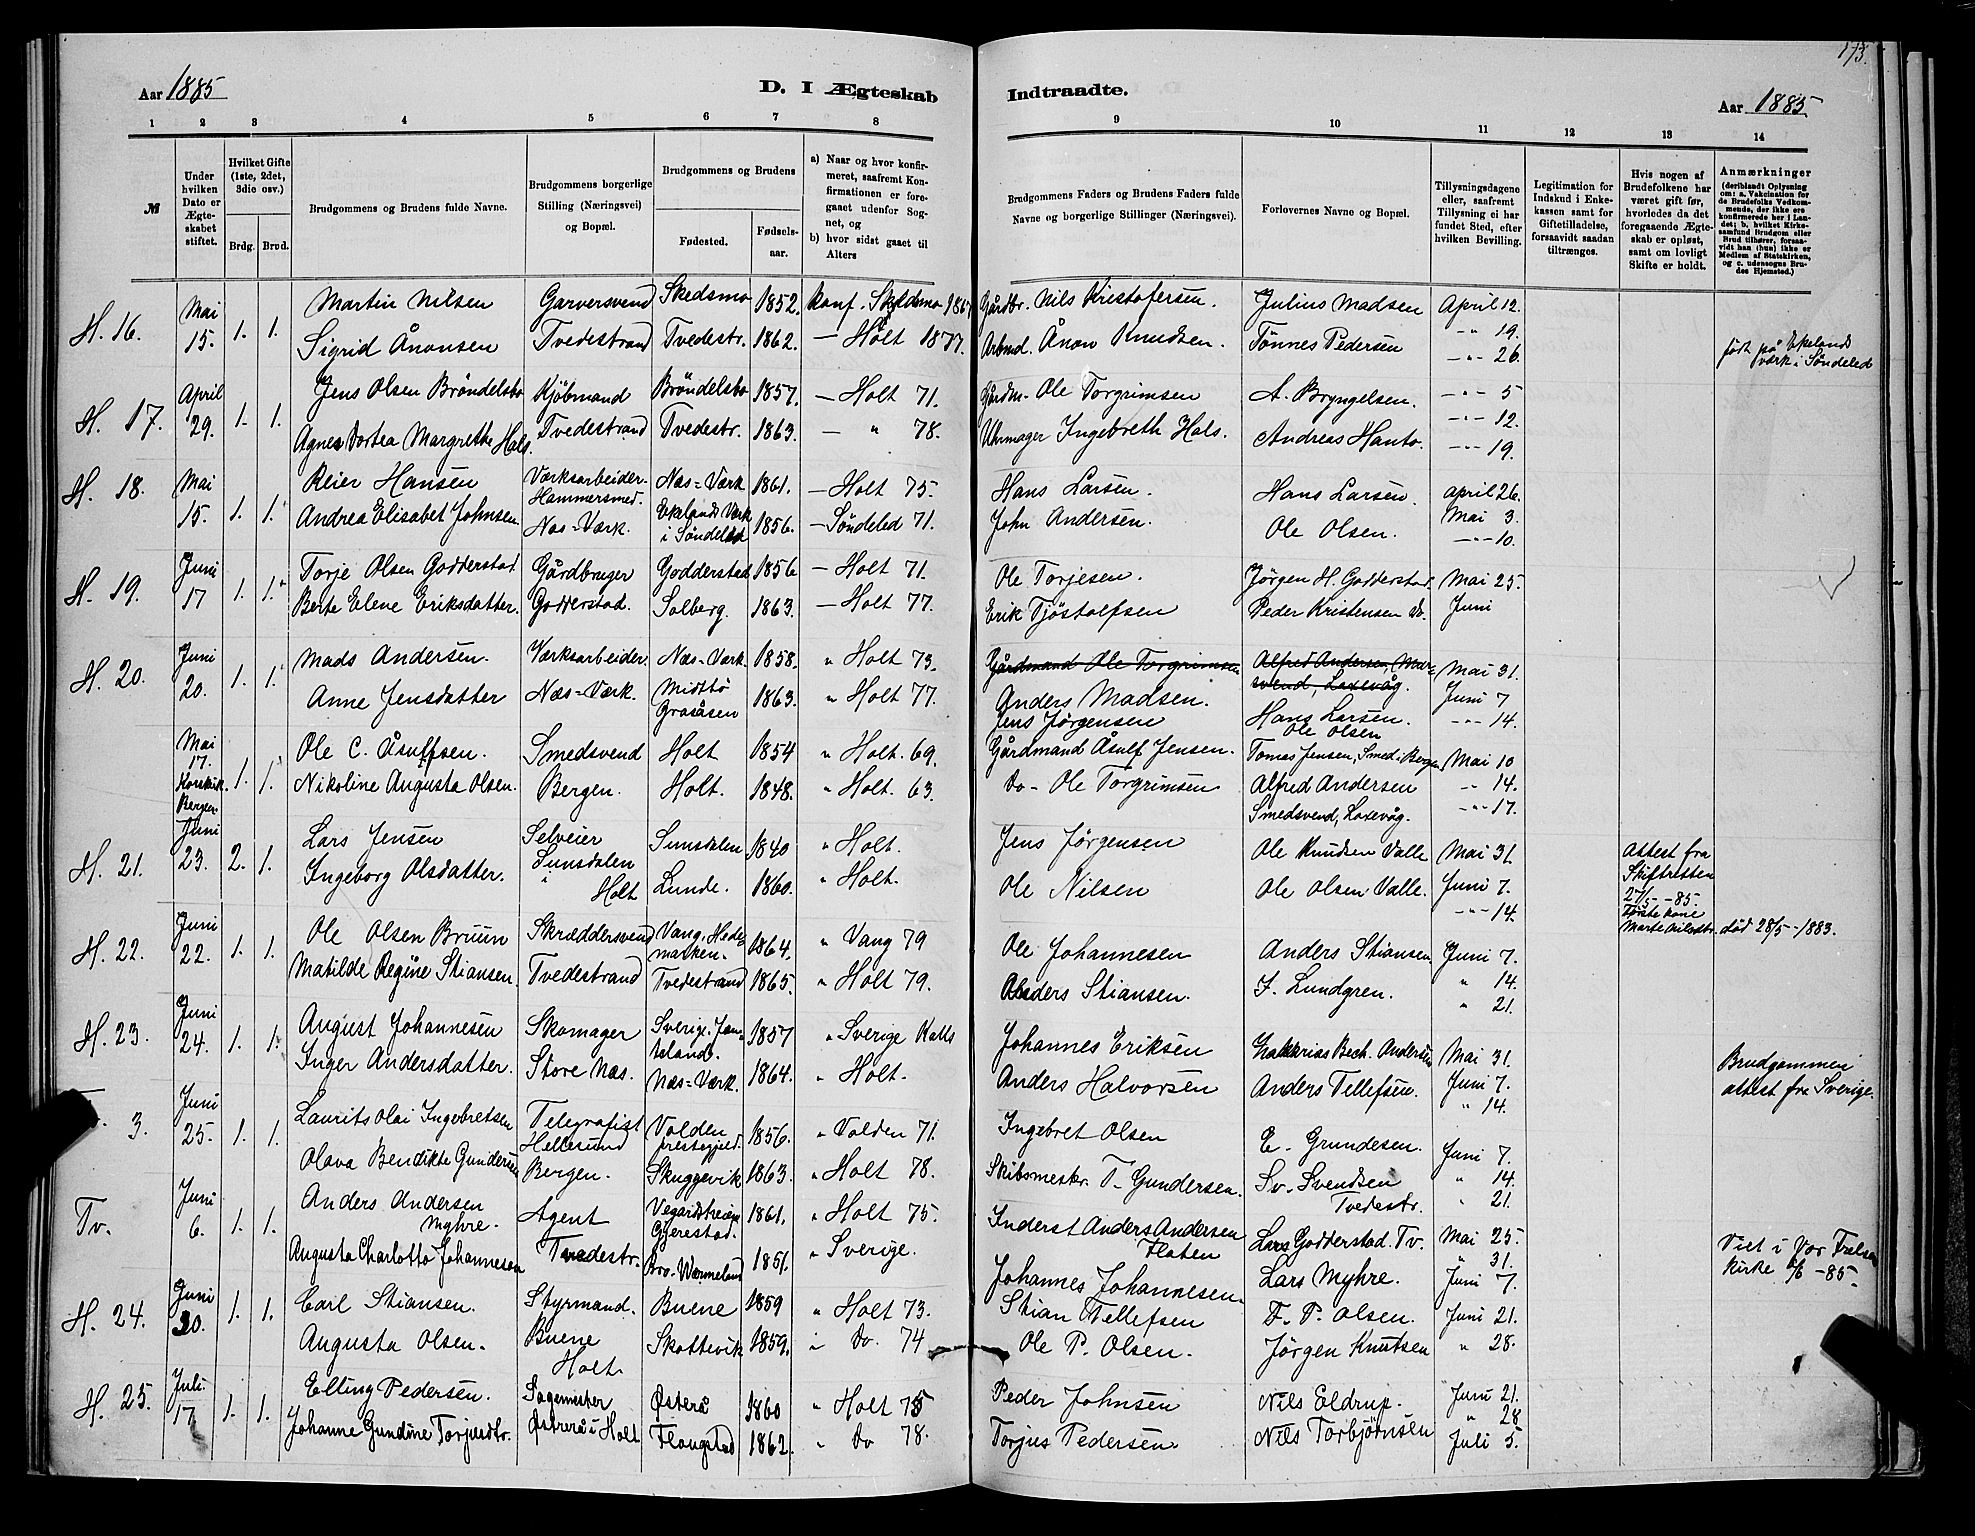 Aar 1885
D. I Ægteskab Indtraadte.
Aar 1885
173.
1 2 3 4 5 6 7 8 9 10 11 12 13 14
№
Under hvilken Dato er Ægteskabet stiftet.
Hvilket Gifte (1ste, 2det, 3die osv.)
Brdg. Brud.
Brudgommens og Brudens fulde Navne.
Brudgommens borgerlige Stilling (Næringsvei) og Bopæl.
Brudgommens og Brudens
Fødested.
Fødselsaar.
a) Naar og hvor konfirmeret, saafremt Konfirmationen er foregaaet udenfor Sognet, og
b) hvor sidst gaaet til Alters
Brudgommens Faders og Brudens Faders fulde Navne og borgerlige Stillinger (Næringsvei).
Forlovernes Navne og Bopæl.
Tillysningsdagene eller, saafremt Tillysning ei har fundet Sted, efter hvilken Bevilling.
Legitimation for Indskud i Enkekassen samt for Giftetilladelse, forsaavidt saadan tiltrænges.
Hvis nogen af Brudefolkene har været gift før, hvorledes da det foregaaende Ægteskab er opløst, samt om lovligt Skifte er holdt.
Anmærkninger
(deriblandt Oplysning om: a. Vakcination for de Brudefolks Vedkommende, der ikke ere konfirmerede her i Landet; b. hvilket Kirkesamfund Brudgom eller Brud tilhører, forsaavidt han (hun) ikke er Medlem af Statskirken, og c. udensogns Brudes Hjemsted.)
H. 16. Mai 15. 1. 1. Martin Nilsen Garversvend Skedsmo 1852. konf. Skedsmo 1867 Gårdbr. Nils Kristofersen. Julius Madsen April 12.
Sigrid Ånonsen Tvedestrand Tvedestr. 1862. — Holt 1877. Arbmd. Ånon Knudsen. Tönnes Pedersen -"- 19. -"- 26. født på Ekelands værk i Søndeled
H. 17. April 29. 1. 1. Jens Olsen Bröndelsbo Kjøbmand Bröndelsbo 1857. — Holt 71. Gårdm. Ole Torgrimsen A. Bryngelsen. -"- 5
Agnes Dortea Margrethe Hals. Tvedestrand Tvedestr. 1863. — " 78. Uhrmager Ingebreth Hals. Andreas Hanto. -"- 12. -"- 19.
H. 18. Mai 15. 1. 1. Reier Hansen Værksarbeider Hammersmed. Næs-Værk 1861. — Holt 75. Hans Larsen. Hans Larsen. April 26.
Andrea Elisabet Johnsen Næs-Værk. Ekelands Værk i Søndeled 1856. — Søndeled 71. John Andersen. Ole Olsen. Mai 3. -"- 10.
H. 19. Juni 17 1. 1. Torje Olsen Godderstad Gårdbruger Godderstad 1856 — Holt 71. Ole Torjesen. Jörgen H. Godderstad Mai 25.
Berte Elene Eriksdatter. Godderstad. Solberg. 1863. — Holt 77. Erik Tjöstolfsen Peder Kristensen do. Juni
H. 20. Juni 20. 1. 1. Mads Andersen. Værksarbeider Næs-Værk. 1858. " Holt 73. Gårdmand Ole Torgrimsen Alfred Andersen, svend, Laxevåg. Mai 31.
Anne Jensdatter Næs-Værk. Midtbø Gråsåsen 1863. " Holt 77. Anders Madsen. Jens Jørgensen Hans Larsen. Ole Olsen Juni 7 -"- 14.
Mai 17. Korskirk. Bergen 1. 1. Ole C. Åsulfsen. Smedsvend Holt 1854 " Holt. 69. Gårdmand Åsulf Jensen. Tomas Jensen, Smed i Bergen Mai 10
Nikoline Augusta Olsen. Bergen. Holt. 1848. " Holt. 63. do- Ole Torgrimsen Alfred Andersen Smedsvend, Laxevåg. -"- 14. -"- 17.
H. 21. Juni 23. 2. 1. Lars Jensen Selveier Sunsdalen 1840 " Holt. Jens Jørgensen Ole Knudsen Valle Mai 31.
Ingeborg Olsdatter. Sunsdalen i Holt Lunde. 1860. " Holt. Ole Nilsen Ole Olsen Valle. Juni 7. -"- 14. Attest fra Skifteretten 27/5 -85. Første kone Marte død 28/5 -1883.
H. 22. Juni 22. 1. 1. Ole Olsen Bruun Skræddersvend Vang, Hedemarken. 1864. " Vang 79 Ole Johannesen Anders Stiansen Juni 7.
Matilde Regine Stiansen. Tvedestrand Tvedestrand 1865. " Holt 79. Anders Stiansen. F. Lundgren. " 14. " 21.
H. 23. Juni 24. 1. 1. August Johannesen Skomager Sverige. 1857 " Sverige Johannes Eriksen Zakkrias Bech. Andersen Mai 31.
Inger Andersdatter. Store Næs. Næs-Værk. 1864. " Holt. Anders Halvorsen Anders Tellefsen. Juni 7. " 14. Brudgommen attest fra Sverige.
3. Juni 25. 1. 1. Laurits Olai Ingebretsen Telegrafist Hellesund Volden prestegjeld. 1856. " Volden 71. Ingebret Olsen E. Grundesen. Juni 7.
Olava Bendikte Gundersen Bergen. Skuggevik 1863. " Holt 78. Skibsmestr. T. Gundersen. Sv. Svendsen Tvedestr. " 14. " 21.
Tv. Juni 6. 1. 1. Anders Andersen Myhre. Agent Gjerestad. 1861. " Holt 75. Inderst Anders Andersen Floten Lars Godderstad. Tv. Mai 25.
Augusta Charlotta Johannesen Tvedestr. Bro. Wermeland 1851. " Sverige. Johannes Johannesen Lars Myhre. " 31. Juni 7. Viet i Vor Frelsers kirke 6/6 -85.
H. 24. Juni 30. 1. 1. Carl Stiansen. Styrmand. Buene 1859 " Holt 73. Stian Tellefsen F. P. Olsen. Juni 21.
Augusta Olsen. Buene Holt Skottevik 1859. " do. 74 Ole P. Olsen. Jörgen Knutsen " 28.
H. 25. Juli 17. 1. 1. Elling Pedersen. Sagemester Østerå 1860 " Holt 75 Peder Johnsen Nils Eldrup. Juni 21.
Johanne Gundine Torjusdtr. Østerå i Holt Flougstad 1862. " do 78. Torjus Pedersen Nils Torbjørnsen " 28 Juli 5.